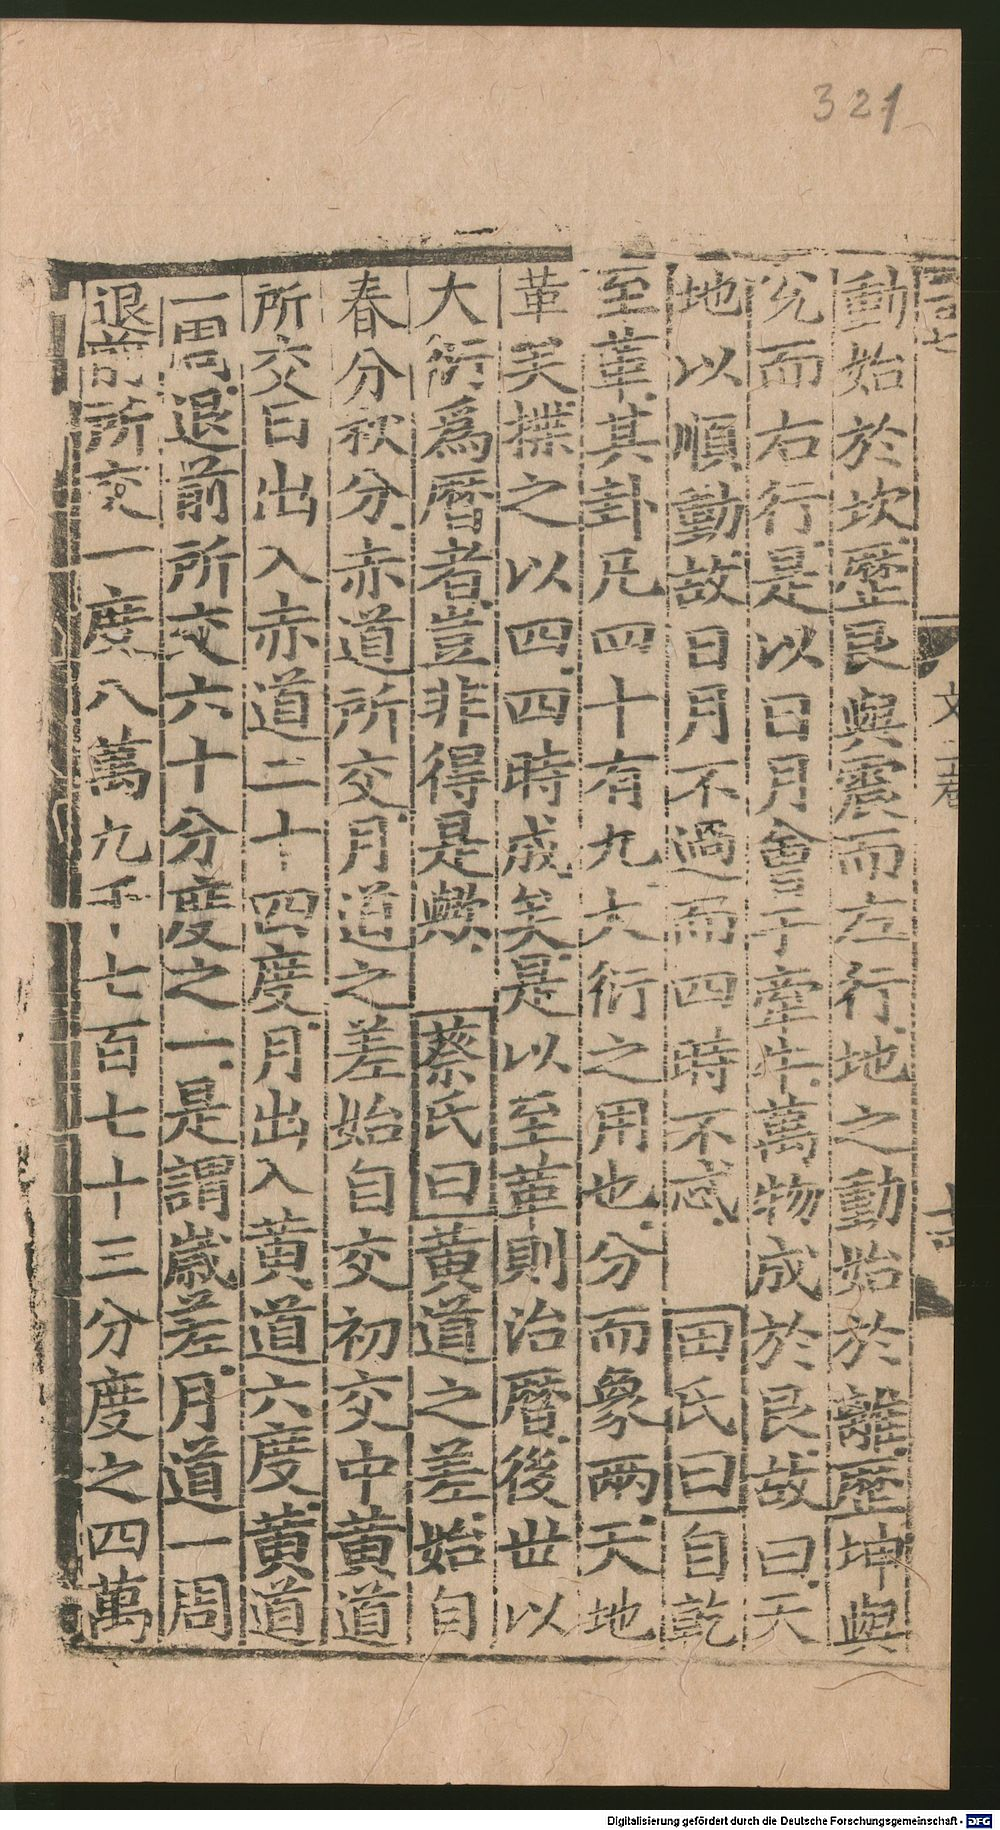 321
動始於坎歷艮與震而左行地之動始於離歷坤與
兌而右行是以日月會于牽牛萬物成於艮故曰天
地以順動故日月不過而四時不忒 田氏曰自乾
至革其卦凡四十有九大衍之用也分而象兩天地
革矣揲之以四四時成矣是以至革則治曆後世以
大衍為曆者豈非得是歟 蔡氏曰黃道之差始自
春分秋分赤道所交月道之差始自交初交中黃道
所交日出入赤道二十四度月出入黃道六度黃道
一周退前所交六十分度之一是謂歲差月道一周
退前所交一度八萬九千七百七十三分度之四萬
Digitalisierung gefördert durch die Deutsche Forschungsgemeinschaft - DFG